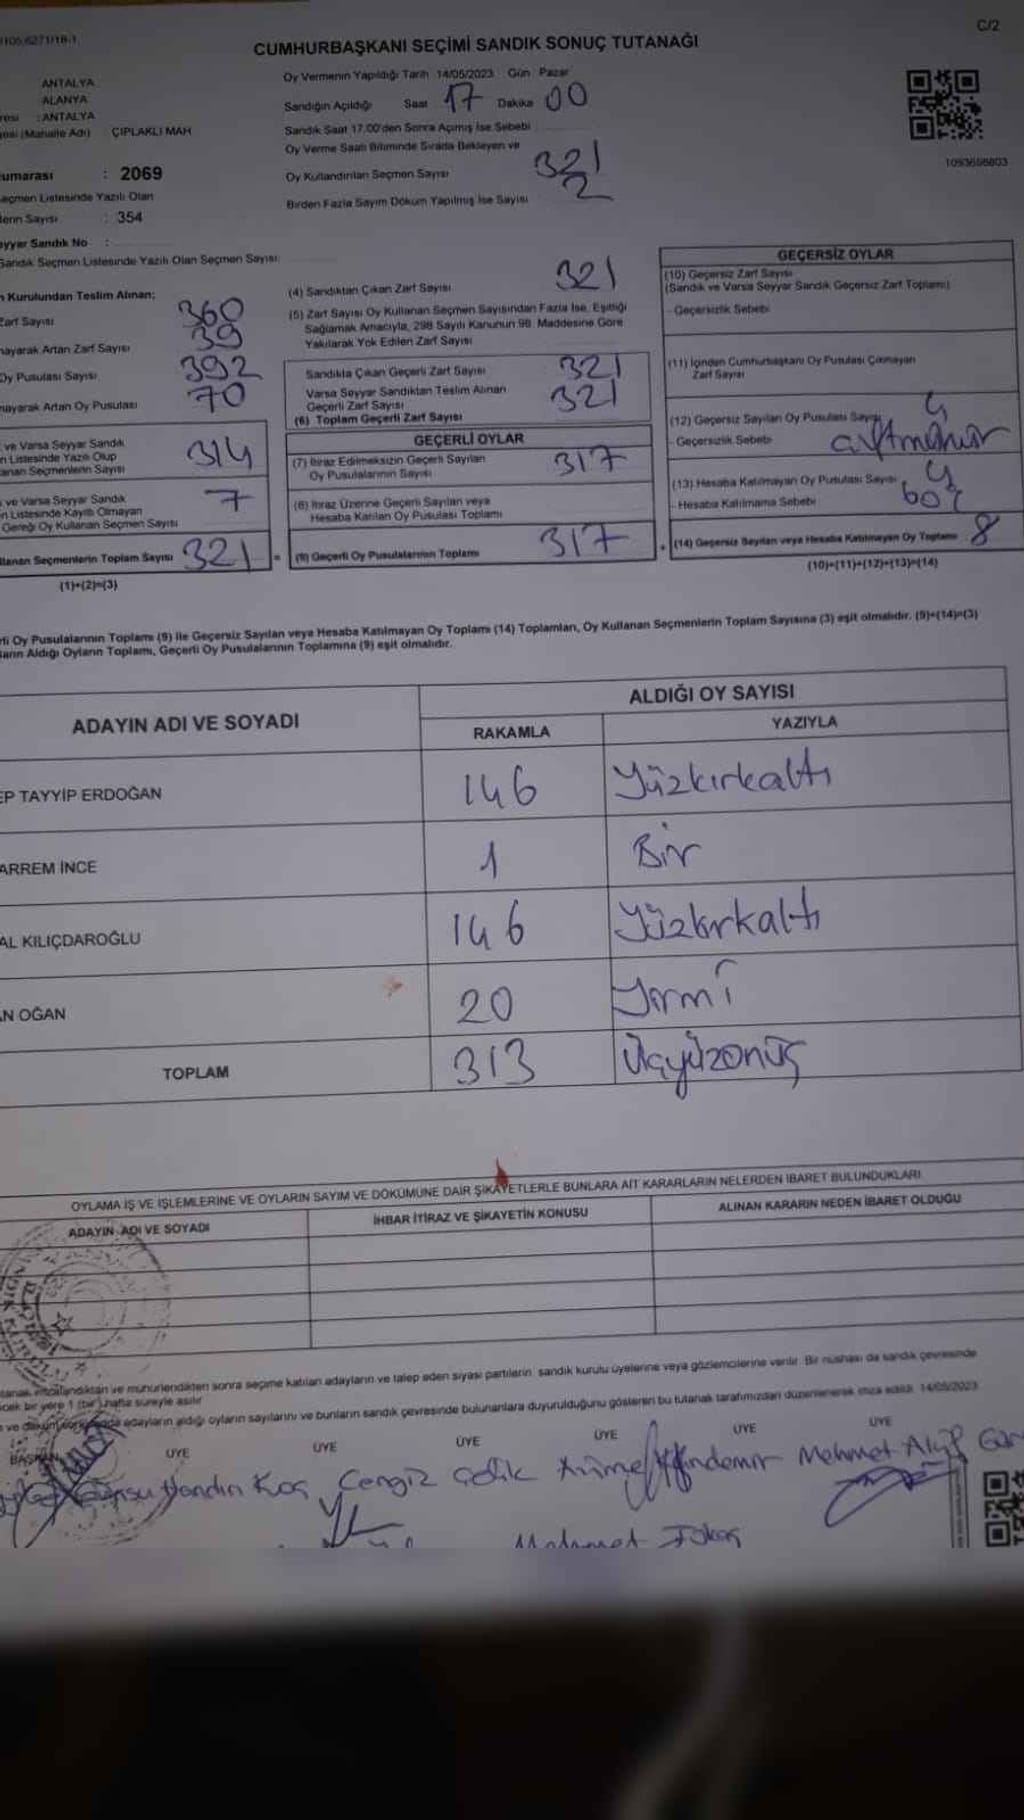 C/2
CUMHURBAŞKANI SEÇİMİ SANDIK SONUÇ TUTANAĞI
ANTALYA
ALANYA
: ANTALYA
(Mahalle Adı) ÇIPLAKLI MAH
: 2069
Seçmen Listesinde Yazılı Olan
Sayısı : 354
Seyyar Sandık No :
Sandık Seçmen Listesinde Yazılı Olan Seçmen Sayısı:
Oy Vermenin Yapıldığı Tarih 14/05/2023 Gün Pazar
Sandığın Açıldığı Saat 17 Dakika 00
Sandık Saat 17.00'den Sonra Açımış İse Sebebi
Oy Verme Saati Bitiminde Sırada Bekleyen ve
Oy Kullandırılan Seçmen Sayısı 321
Birden Fazla Sayım Döküm Yapılmış İse Sayısı 2
1093698803
Kurulundan Teslim Alınan;
Zarf Sayısı 360
Artan Zarf Sayısı 39
Oy Pusulası Sayısı 392
Artan Oy Pusulası 70
ve Varsa Seyyar Sandık
Listesinde Yazılı Olup
Seçmenlerin Sayısı 314
ve Varsa Seyyar Sandık
Listesinde Kayıtlı Olmayan
Gereği Oy Kullanan Seçmen Sayısı 7
Seçmenlerin Toplam Sayısı 321
(1)+(2)=(3)
(4) Sandıktan Çıkan Zarf Sayısı 321
(5) Zarf Sayısı Oy Kullanan Seçmen Sayısından Fazla İse, Eşitliği
Sağlamak Amacıyla, 298 Sayılı Kanunun 98. Maddesine Göre
Yakılarak Yok Edilen Zarf Sayısı
Sandıkta Çıkan Geçerli Zarf Sayısı 321
Varsa Seyyar Sandıktan Teslim Alınan
Geçerli Zarf Sayısı 321
(6) Toplam Geçerli Zarf Sayısı
GEÇERLİ OYLAR
(7) İtiraz Edilmeksizin Geçerli Sayılan
Oy Pusulalarının Sayısı 317
(8) İtiraz Üzerine Geçerli Sayılan veya
Hesaba Katılan Oy Pusulası Toplamı
(9) Geçerli Oy Pusulalarının Toplamı 317
GEÇERSİZ OYLAR
(10) Geçersiz Zarf Sayısı
(Sandık ve Varsa Seyyar Sandık Geçersiz Zarf Toplamı)
- Geçersizlik Sebebi
(11) İçinden Cumhurbaşkanı Oy Pusulası Çıkmayan
Zarf Sayısı
(12) Geçersiz Sayılan Oy Pusulası Sayısı 4
- Geçersizlik Sebebi
(13) Hesaba Katılmayan Oy Pusulası Sayısı 4
- Hesaba Katılmama Sebebi boş
(14) Geçersiz Sayılan veya Hesaba Katılmayan Oy Toplamı 8
(10)+(11)+(12)+(13)=(14)
Oy Pusulalarının Toplamı (9) ile Geçersiz Sayılan veya Hesaba Katılmayan Oy Toplamı (14) Toplamları, Oy Kullanan Seçmenlerin Toplam Sayısına (3) eşit olmalıdır. (9)+(14)=(3)
Aldığı Oyların Toplamı, Geçerli Oy Pusulalarının Toplamına (9) eşit olmalıdır.
ADAYIN ADI VE SOYADI ALDIĞI OY SAYISI
RAKAMLA YAZIYLA
EP TAYYİP ERDOĞAN 146 Yüzkırkaltı
ARREM İNCE 1 Bir
AL KILIÇDAROĞLU 146 Yüzkırkaltı
N OĞAN 20 Yirmi
TOPLAM 313 Üçyüzonüç
OYLAMA İŞ VE İŞLEMLERİNE VE OYLARIN SAYIM VE DÖKÜMÜNE DAİR ŞİKAYETLERLE BUNLARA AİT KARARLARIN NELERDEN İBARET BULUNDUKLARI
ADAYIN ADI VE SOYADI İHBAR İTİRAZ VE ŞİKAYETİN KONUSU ALINAN KARARIN NEDEN İBARET OLDUĞU
imzalandıktan ve mühürlendikten sonra seçime katılan adayların ve talep eden siyasi partilerin, sandık kurulu üyelerine veya gözlemcilerine verilir. Bir nüshası da sandık çevresinde
bir yere 1 (bir) hafta süreyle asılır
adayların aldığı oyların sayılarını ve bunların sandık çevresinde bulunanlara duyurulduğunu gösteren bu tutanak tarafımızdan düzenlenerek imza edildi. 14/05/2023
BAŞKAN ÜYE ÜYE ÜYE ÜYE ÜYE ÜYE
Handın Koç Cengiz Çelik Mehmet Akif